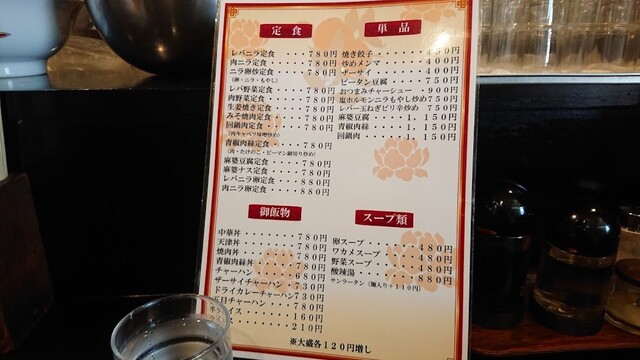 定食
レバニラ定食・・・・780円
肉ニラ定食・・・・・780円
ニラ卵炒定食・・・・780円
(卵・ニラ・もやし)
レバ野菜定食・・・・780円
肉野菜定食・・・・・780円
生姜焼き定食・・・・780円
みそ焼肉定食・・・・780円
回鍋肉定食・・・・・780円
(肉キャベツ味噌炒め)
青椒肉絲定食・・・・780円
(肉・たけのこ・ピーマン細切り炒め)
麻婆豆腐定食・・・・780円
麻婆ナス定食・・・・780円
レバニラ卵定食・・・880円
肉ニラ卵定食・・・・880円
単品
焼き餃子・・・・・・450円
炒めメンマ・・・・・400円
ザーサイ・・・・・・400円
ピータン豆腐・・・・750円
おつまみチャーシュー・900円
塩ホルモンニラもやし炒め750円
レバー玉ねぎピリ辛炒め 750円
麻婆豆腐・・・・1,150円
青椒肉絲・・・・1,150円
回鍋肉・・・・・1,150円
御飯物
中華丼・・・・・・・780円
天津丼・・・・・・・780円
焼肉丼・・・・・・・780円
青椒肉絲丼・・・・・780円
チャーハン・・・・・680円
ザーサイチャーハン・730円
ドライカレーチャーハン730円
チャーハン・・・780円
イス・・・・・160円
・・・・・・210円
スープ類
卵スープ・・・・・・480円
ワカメスープ・・・・480円
野菜スープ・・・・・480円
酸辣湯・・・・・・・880円
サンラータン(麺入り+110円)
※大盛各120円増し